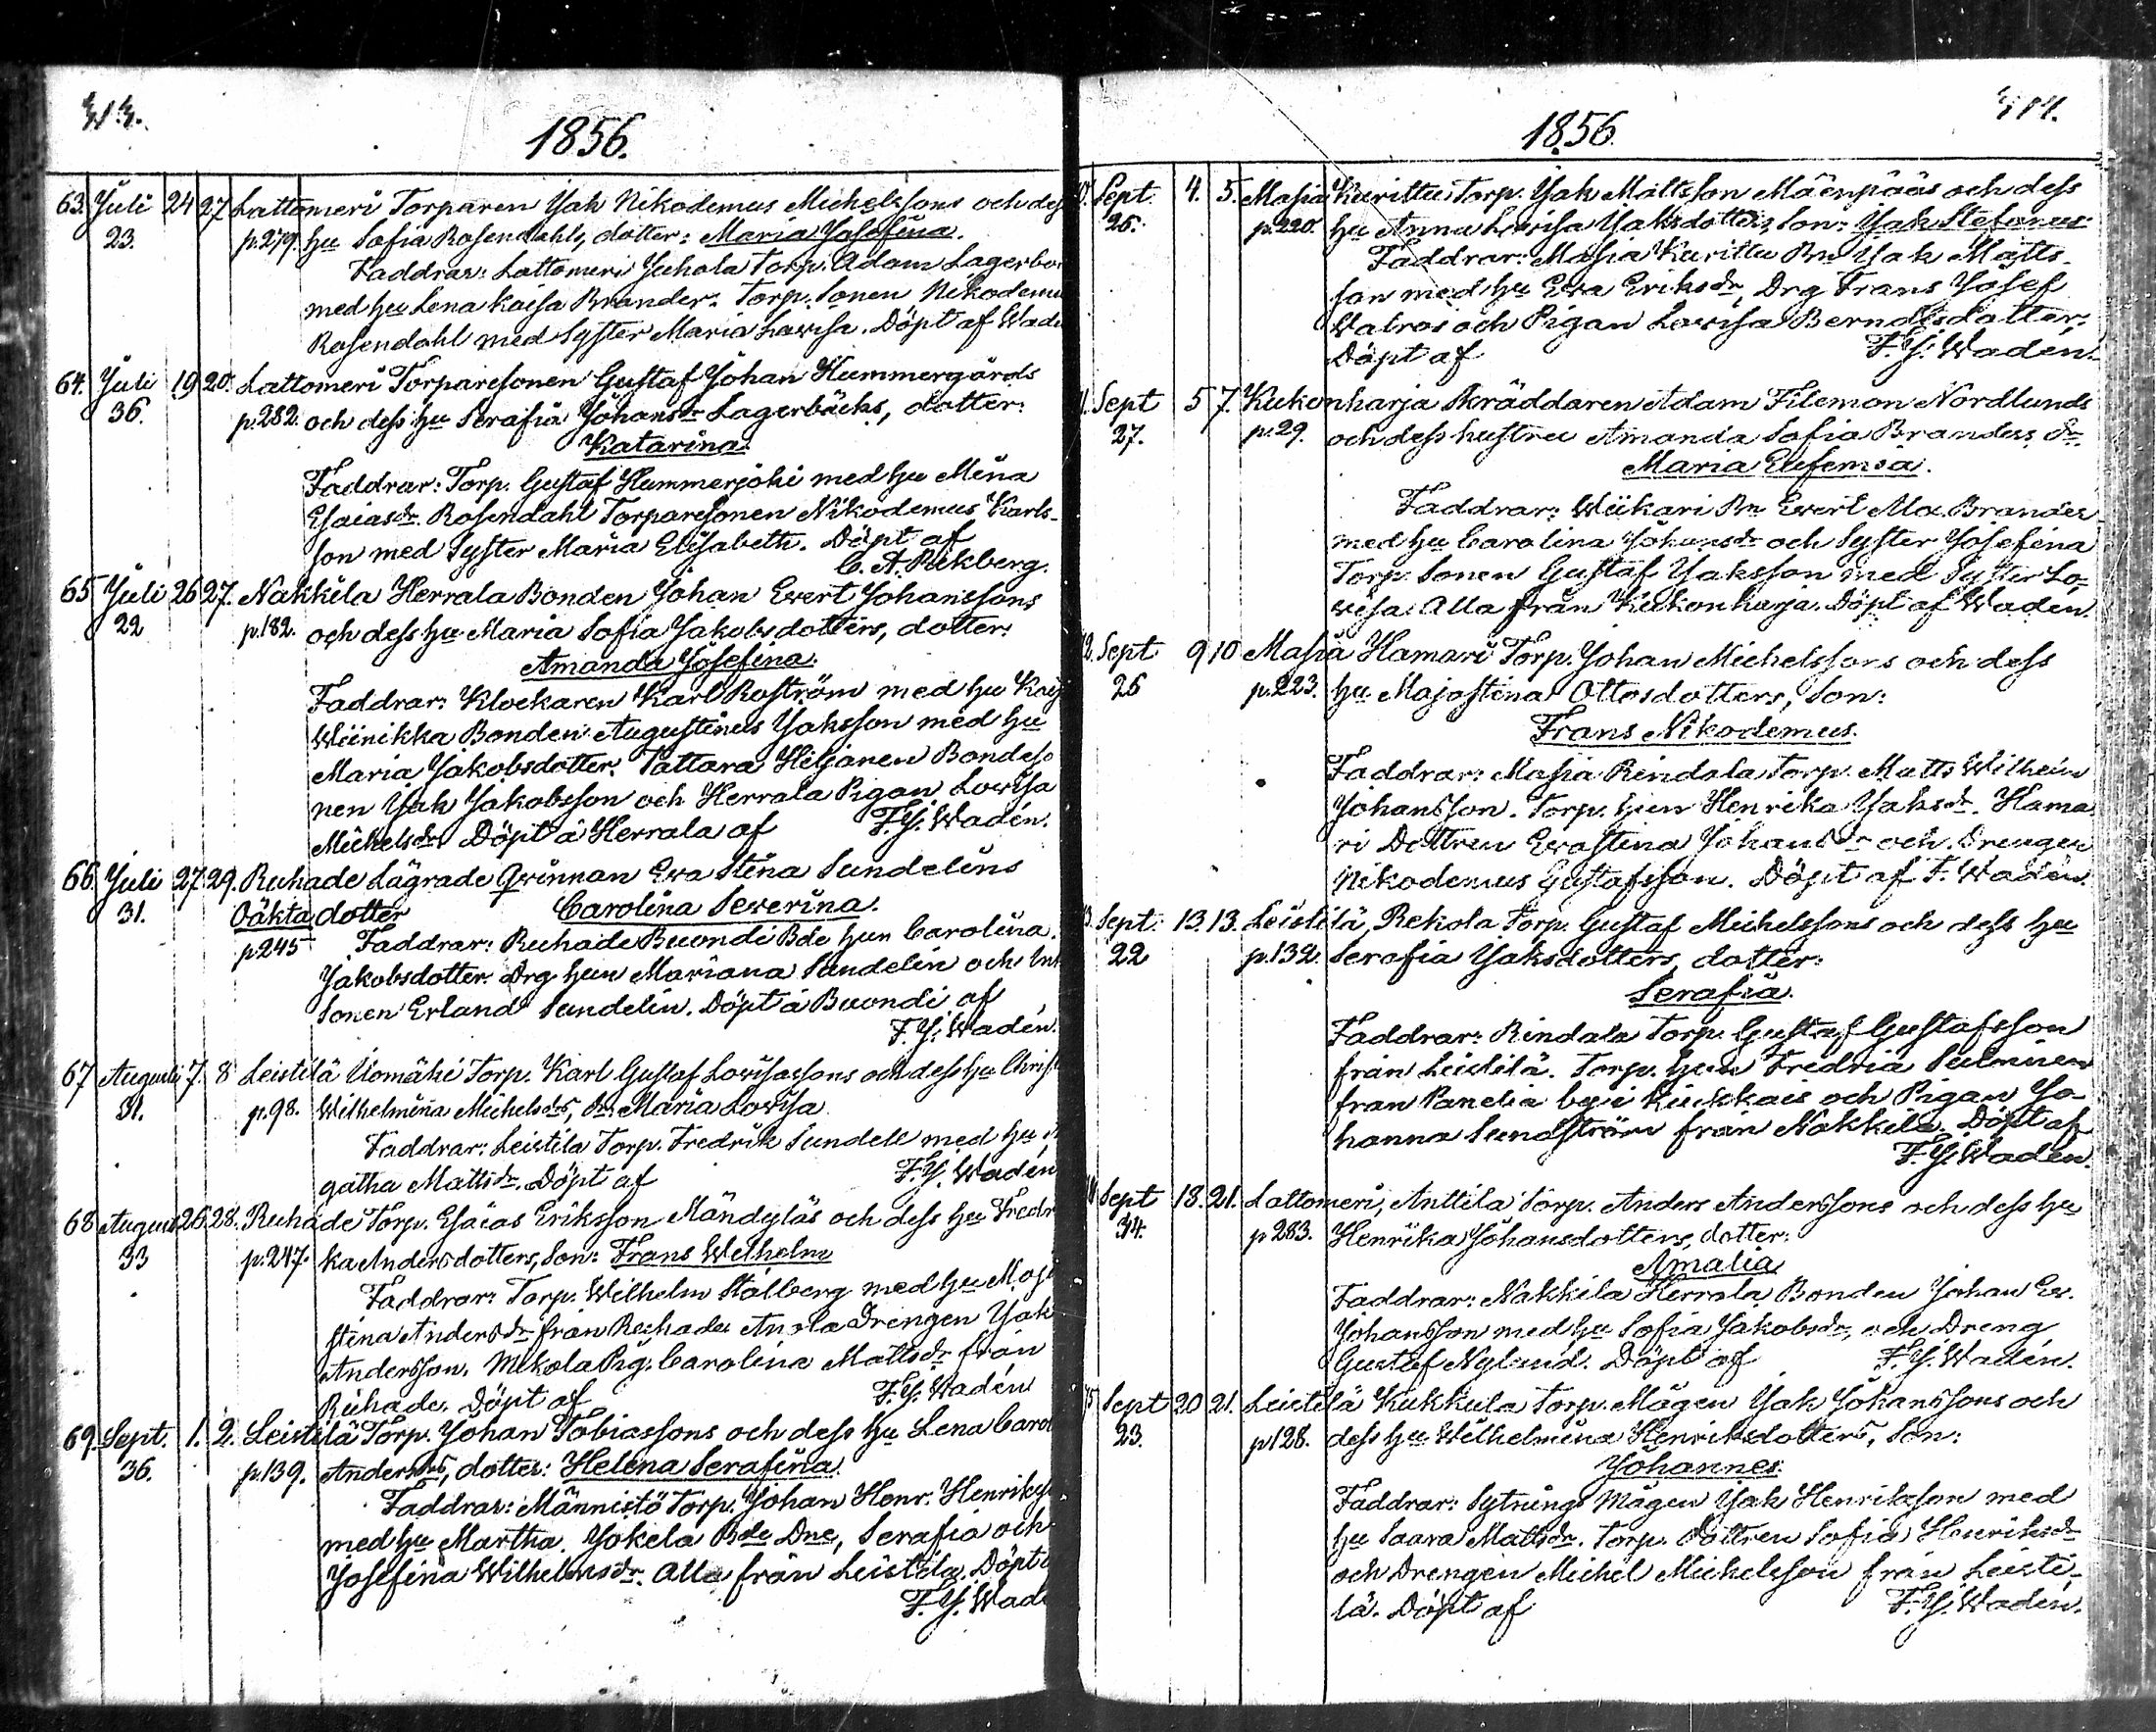 313.
1856.
63. Juli 24 27 Lattomeri Torparen Jak Nikodemus Michelssons och dess
23. p.279. hu Sofia Rosendahls, dotter: Maria Josefina.
Faddrar: Lattomeri Juhola Torp. Adam Lagerbo
med hu Lena Kaisa Brander. Torp. Sonen Nikodemu
Rosendahl med Syster Maria Lovisa. Döpt af Wadé
64. Juli 19 20. Lattomeri Torparesonen Gustaf Johan Hummergårds
36. p.282. och dess hu Serafia Johansdr Lagerbäcks, dotter:
Katarina.
Faddrar: Torp. Gustaf Hummerjoki med hu Mina
Esaiasdr. Rosendahl Torparesonen Nikodemus Karls-
son med Syster Maria Elisabeth. Döpt af
C. A. Rekberg.
65 Juli 26 27. Nakkila Herrala Bonden Johan Evert Johanssons
22 p.182. och dess hu Maria Sofia Jakobsdotters, dotter:
Amanda Josefina.
Faddrar: Klockaren Karl Roström med hu Kaj
Wiinikka Bonden Augustinus Jaksson med hu
Maria Jakobsdotter. Tattara Hiljanen Bondeso
nen Jak Jakobsson och Herrala Pigan Lovisa
Michelsdr. Döpt å Herrala af F. J. Wadén.
66 Juli 27. 29. Ruhade Lägrade Qvinnan Eva Stina Sundelins
31. Oäkta dotter Carolina Severina.
p.245 Faddrar: Ruhade Buondi Bde hun Carolina
Jakobsdotter. Drg hun Mariana Sundelin och Inh
Sonen Erland Sundelin. Döpt å Buondi af
F. J. Wadén.
67 Augusti 7. 8 Leistilä Uomäki Torp. Karl Gustaf Lovisassons och dess hu Christ
31. p.98. Wilhelmina Michelsdrs, dr. Maria Lovisa
Faddrar: Leistila Torp. Fredrik Sundell med hu A
gatha Mattsdr. Döpt af F. J. Wadén
68 August 26. 28. Ruhade Torp. Esaias Eriksson Mändyläs och dess hu Fredri
33 p.247. ka Andersdotters, Son: Frans Wilhelm
Faddrar: Torp. Wilhelm Stålberg med hu Maja
stina Andersdr från Ruhade Anola Drengen Jak
Andersson. Mikola Pig. Carolina Mattsdr från
Ruhade. Döpt af F. J. Wadén
69. Sept. 1. 2. Leistilä Torp. Johan Tobiassons och dess hu Lena Carol
36. p.139. Andersdrs, dotter: Helena Serafina.
Faddrar: Männistö Torp. Johan Henr. Henriks
med hu Martha. Jokela Bde Dne, Serafia och
Josefina Wilhelmsdr. Alla från Leistila. Döpt a
F. J. Wadé
314.
1856.
Sept 4. 5. Masia Kurittu Torp. Jak Mattsson Mäenpääs och dess
26. p.220. hu Anna Lovisa Jaksdotters, Son: Jak Stefanus
Faddrar: Masia Kurittu Bn Jak Matts-
son med hu Eva Eriksdr, Drg Frans Josef
Walros och Pigan Lovisa Berndtsdotter.
Döpt af F. J. Wadén.
Sept 5 7. Kukonharja Skräddaren Adam Filemon Nordlunds
27. p.29. och dess hustru Amanda Sofia Branders dr.
Maria Eufemia.
Faddrar: Wiikari Bn Evert Brander
med hu Carolina Johansdr och Syster Josefina
Torp. Sonen Gustaf Jaksson med Syster Lo-
visa. Alla från Kukonharja. Döpt af Wadén.
Sept 9 10 Masia Hamari Torp. Johan Michelssons och dess
26 p.223. hu Majastina Ottosdotters, Son:
Frans Nikodemus.
Faddrar: Masia Rindala Torp. Matts Wilhelm
Johansson. Torp. hun Henrika Jaksdr. Hama
ri Dottren Evastina Johansdr och Drengen
Nikodemus Gustafsson. Döpt af F. Wadén.
Sept. 13. 13. Leistilä, Rekola Torp. Gustaf Michelssons och dess hu
22 p.132. Serafia Jaksdotters, dotter:
Serafia.
Faddrar: Rindala Torp. Gustaf Gustafsson
från Leistilä. Torp. hun Fredria Salminen
från Panelia by i Kiukkais och Pigan Jo-
hanna Sundström från Nakkila. Döpt af
F. J. Wadén.
Sept 18. 21. Lattomeri, Anttila Torp. Anders Anderssons och dess hu
34. p 283. Henrika Johansdotters, dotter:
Amalia
Faddrar: Nakkila Herrala Bonden Johan Ev.
Johansson med hu Sofia Jakobsdr, och Dreng
Gustaf Nylund. Döpt af F. J. Wadén.
Sept 20 21. Leistilä Kukkula Torp. Mågen Jak Johanssons och
23. p 128. dess hu Wilhelmina Henriksdotters, Son:
Johannes.
Faddrar: Sytnings Mågen Jak Henriksson med
hu Saara Mattsdr. Torp. Dottren Sofia Henriksdr
och Drengen Michel Michelsson från Leisti-
lä. Döpt af F. J. Wadén.